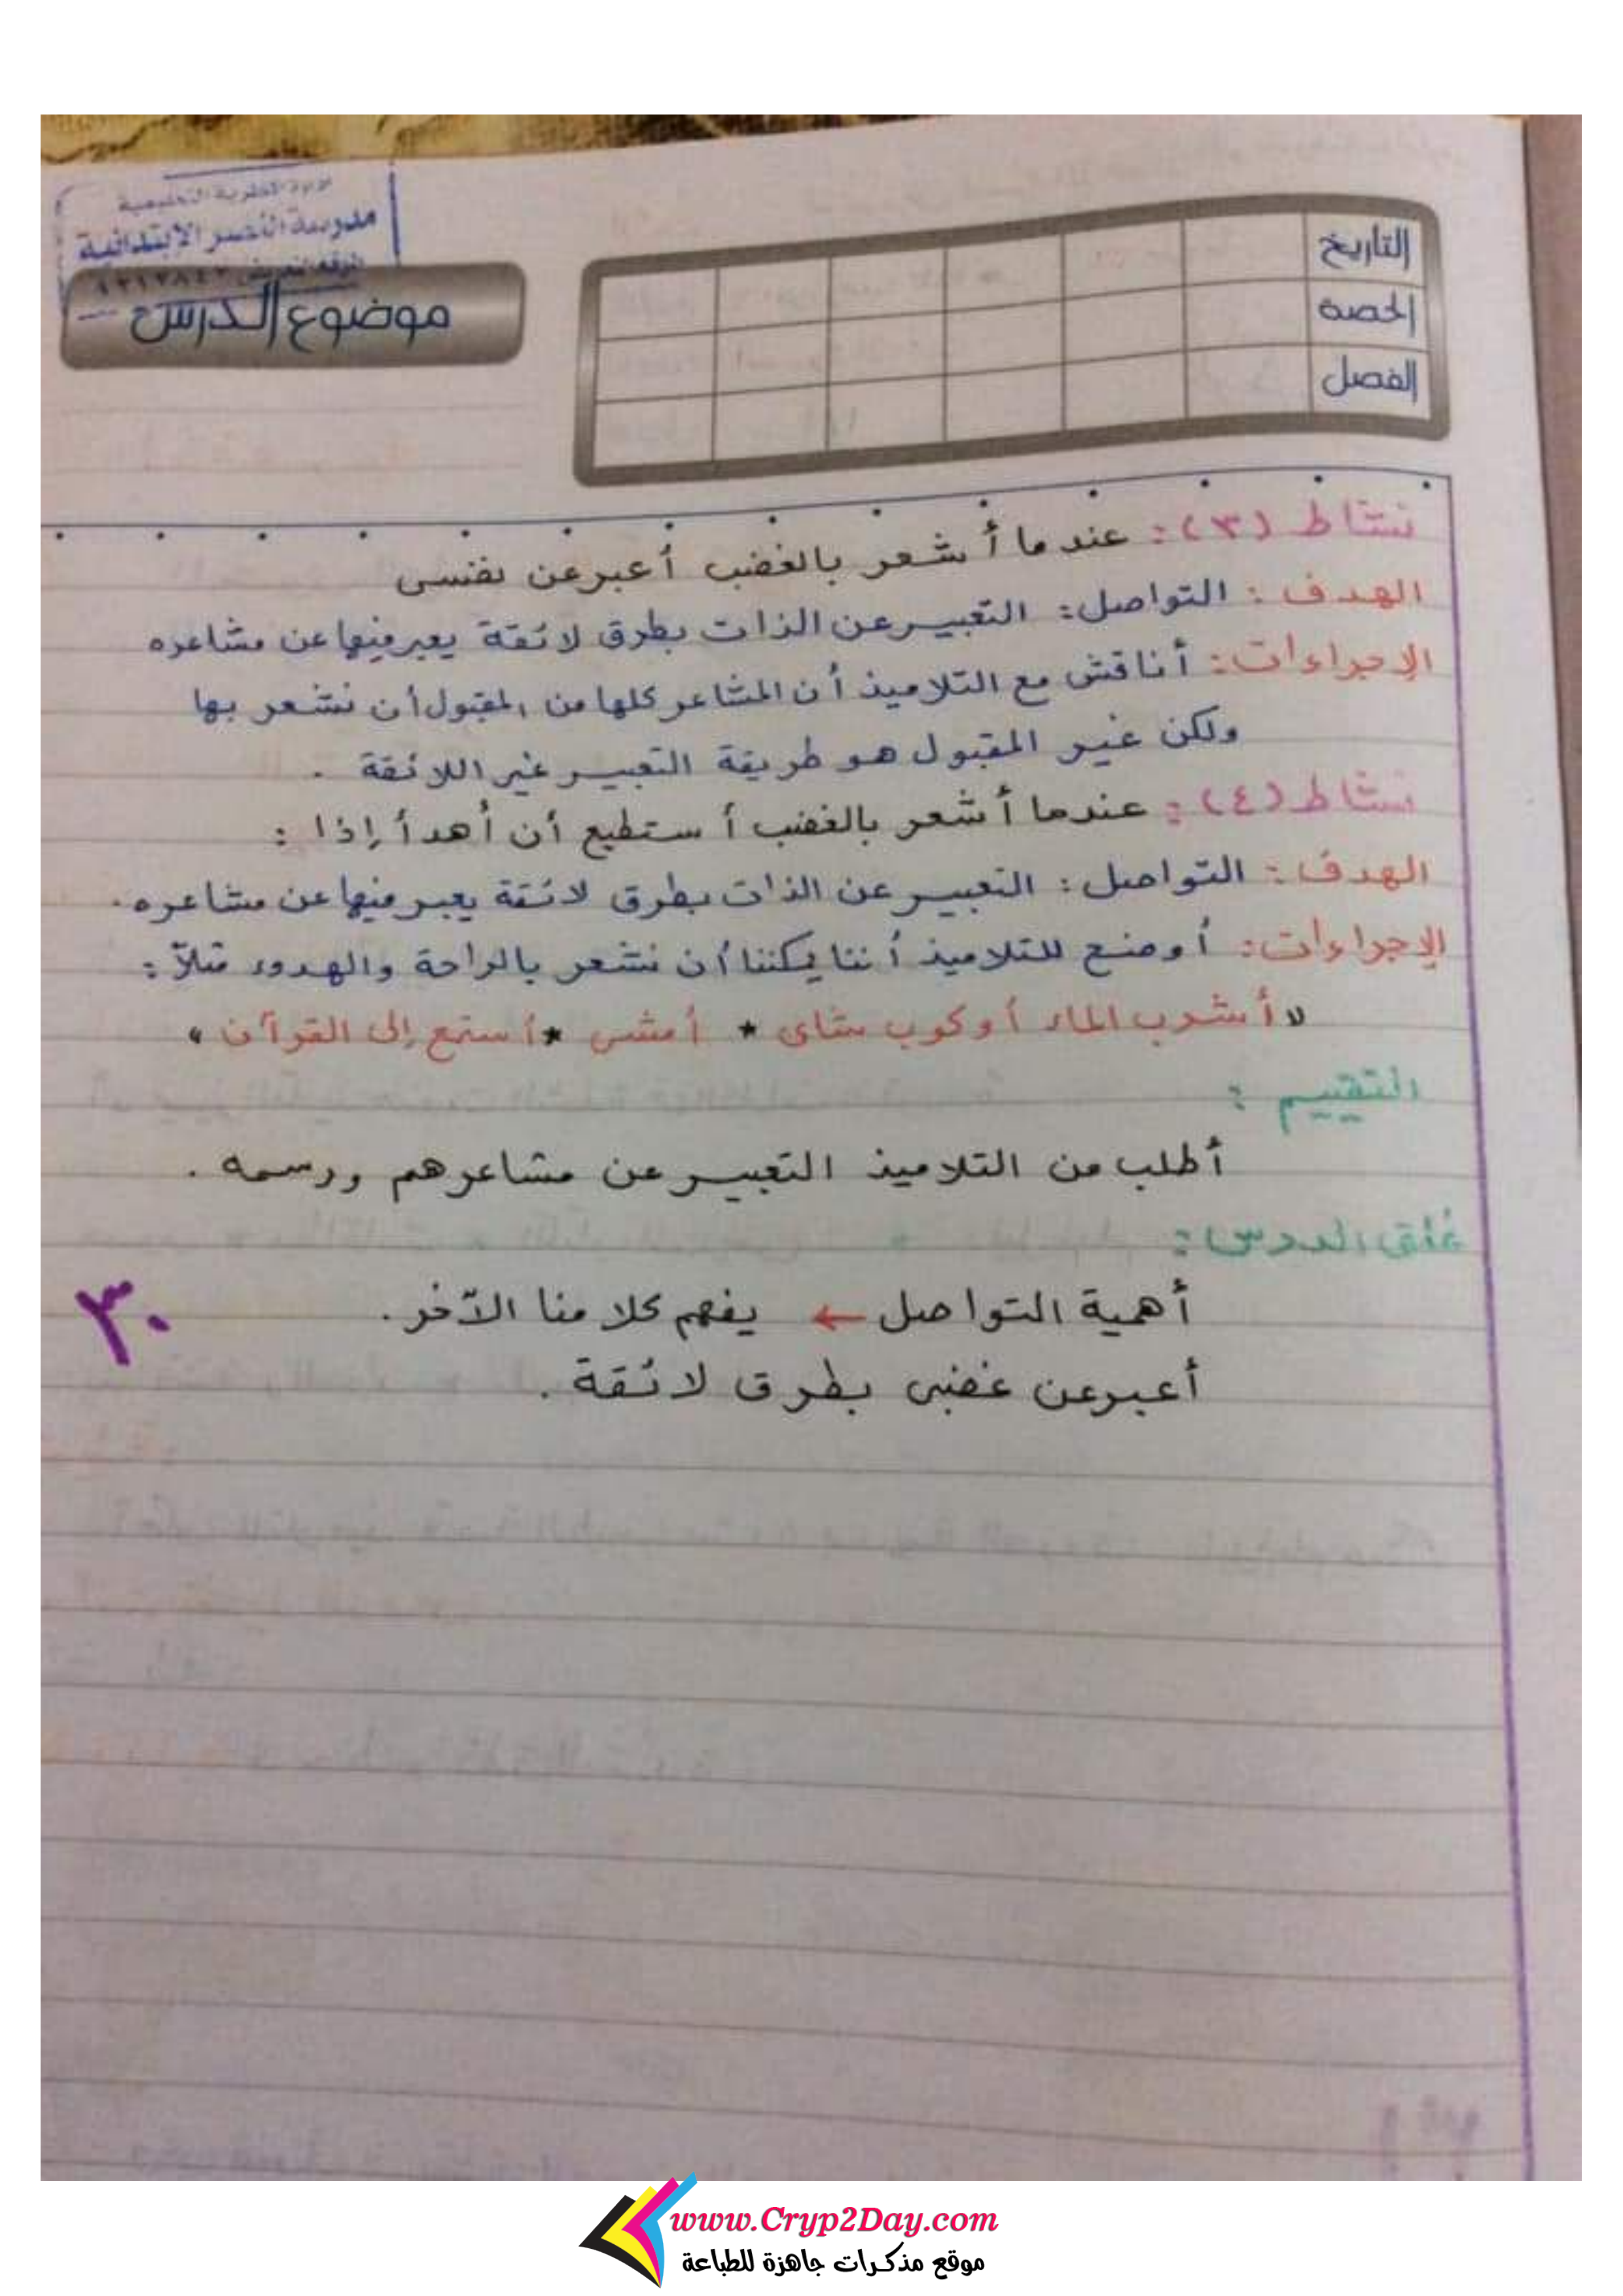 مدرسة النصر الابتدائية
التاريخ
الحصة
الفصل
موضوع الدرس
نشاط (٣): عندما أشعر بالغضب أعبر عن نفسى
الهدف: التواصل: التعبير عن الذات بطرق لائقة يعبر فيها عن مشاعره
الإجراءات: أناقش مع التلاميذ أن المشاعر كلها من المقبول أن نشعر بها
ولكن غير المقبول هو طريقة التعبير غير اللائقة .
نشاط (٤): عندما أشعر بالغضب أستطيع أن أهدأ إذا :
الهدف: التواصل: التعبير عن الذات بطرق لائقة يعبر فيها عن مشاعره.
الإجراءات: أوضح للتلاميذ أننا يمكننا أن نشعر بالراحة والهدوء مثلاً:
" أشرب الماء أو كوب شاى * أمشى * أستمع إلى القرآن "
التقييم :
أطلب من التلاميذ التعبير عن مشاعرهم ورسمه .
غلق الدرس:
أهمية التواصل ← يفهم كلامنا الآخر .
٣٠
أعبر عن غضبى بطرق لائقة .
www.Cryp2Day.com
موقع مذكرات جاهزة للطباعة